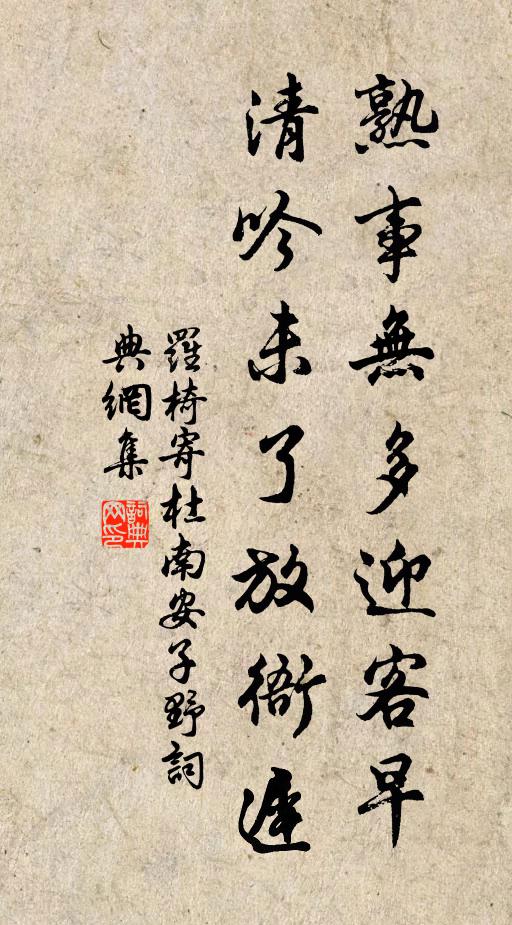 熟事無多迎客早
清吟未了放衙遲
羅椅寄杜南安子野詞
典網集
詞典網印